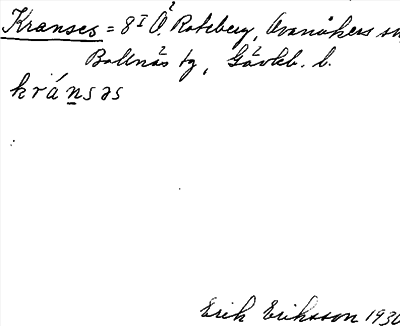 Kranses = 8 I Ö. Roteberg, Ovanåkers sn,
Bollnäs tg, Gävleb. l.
kránsəs
Erik Eriksson 1930